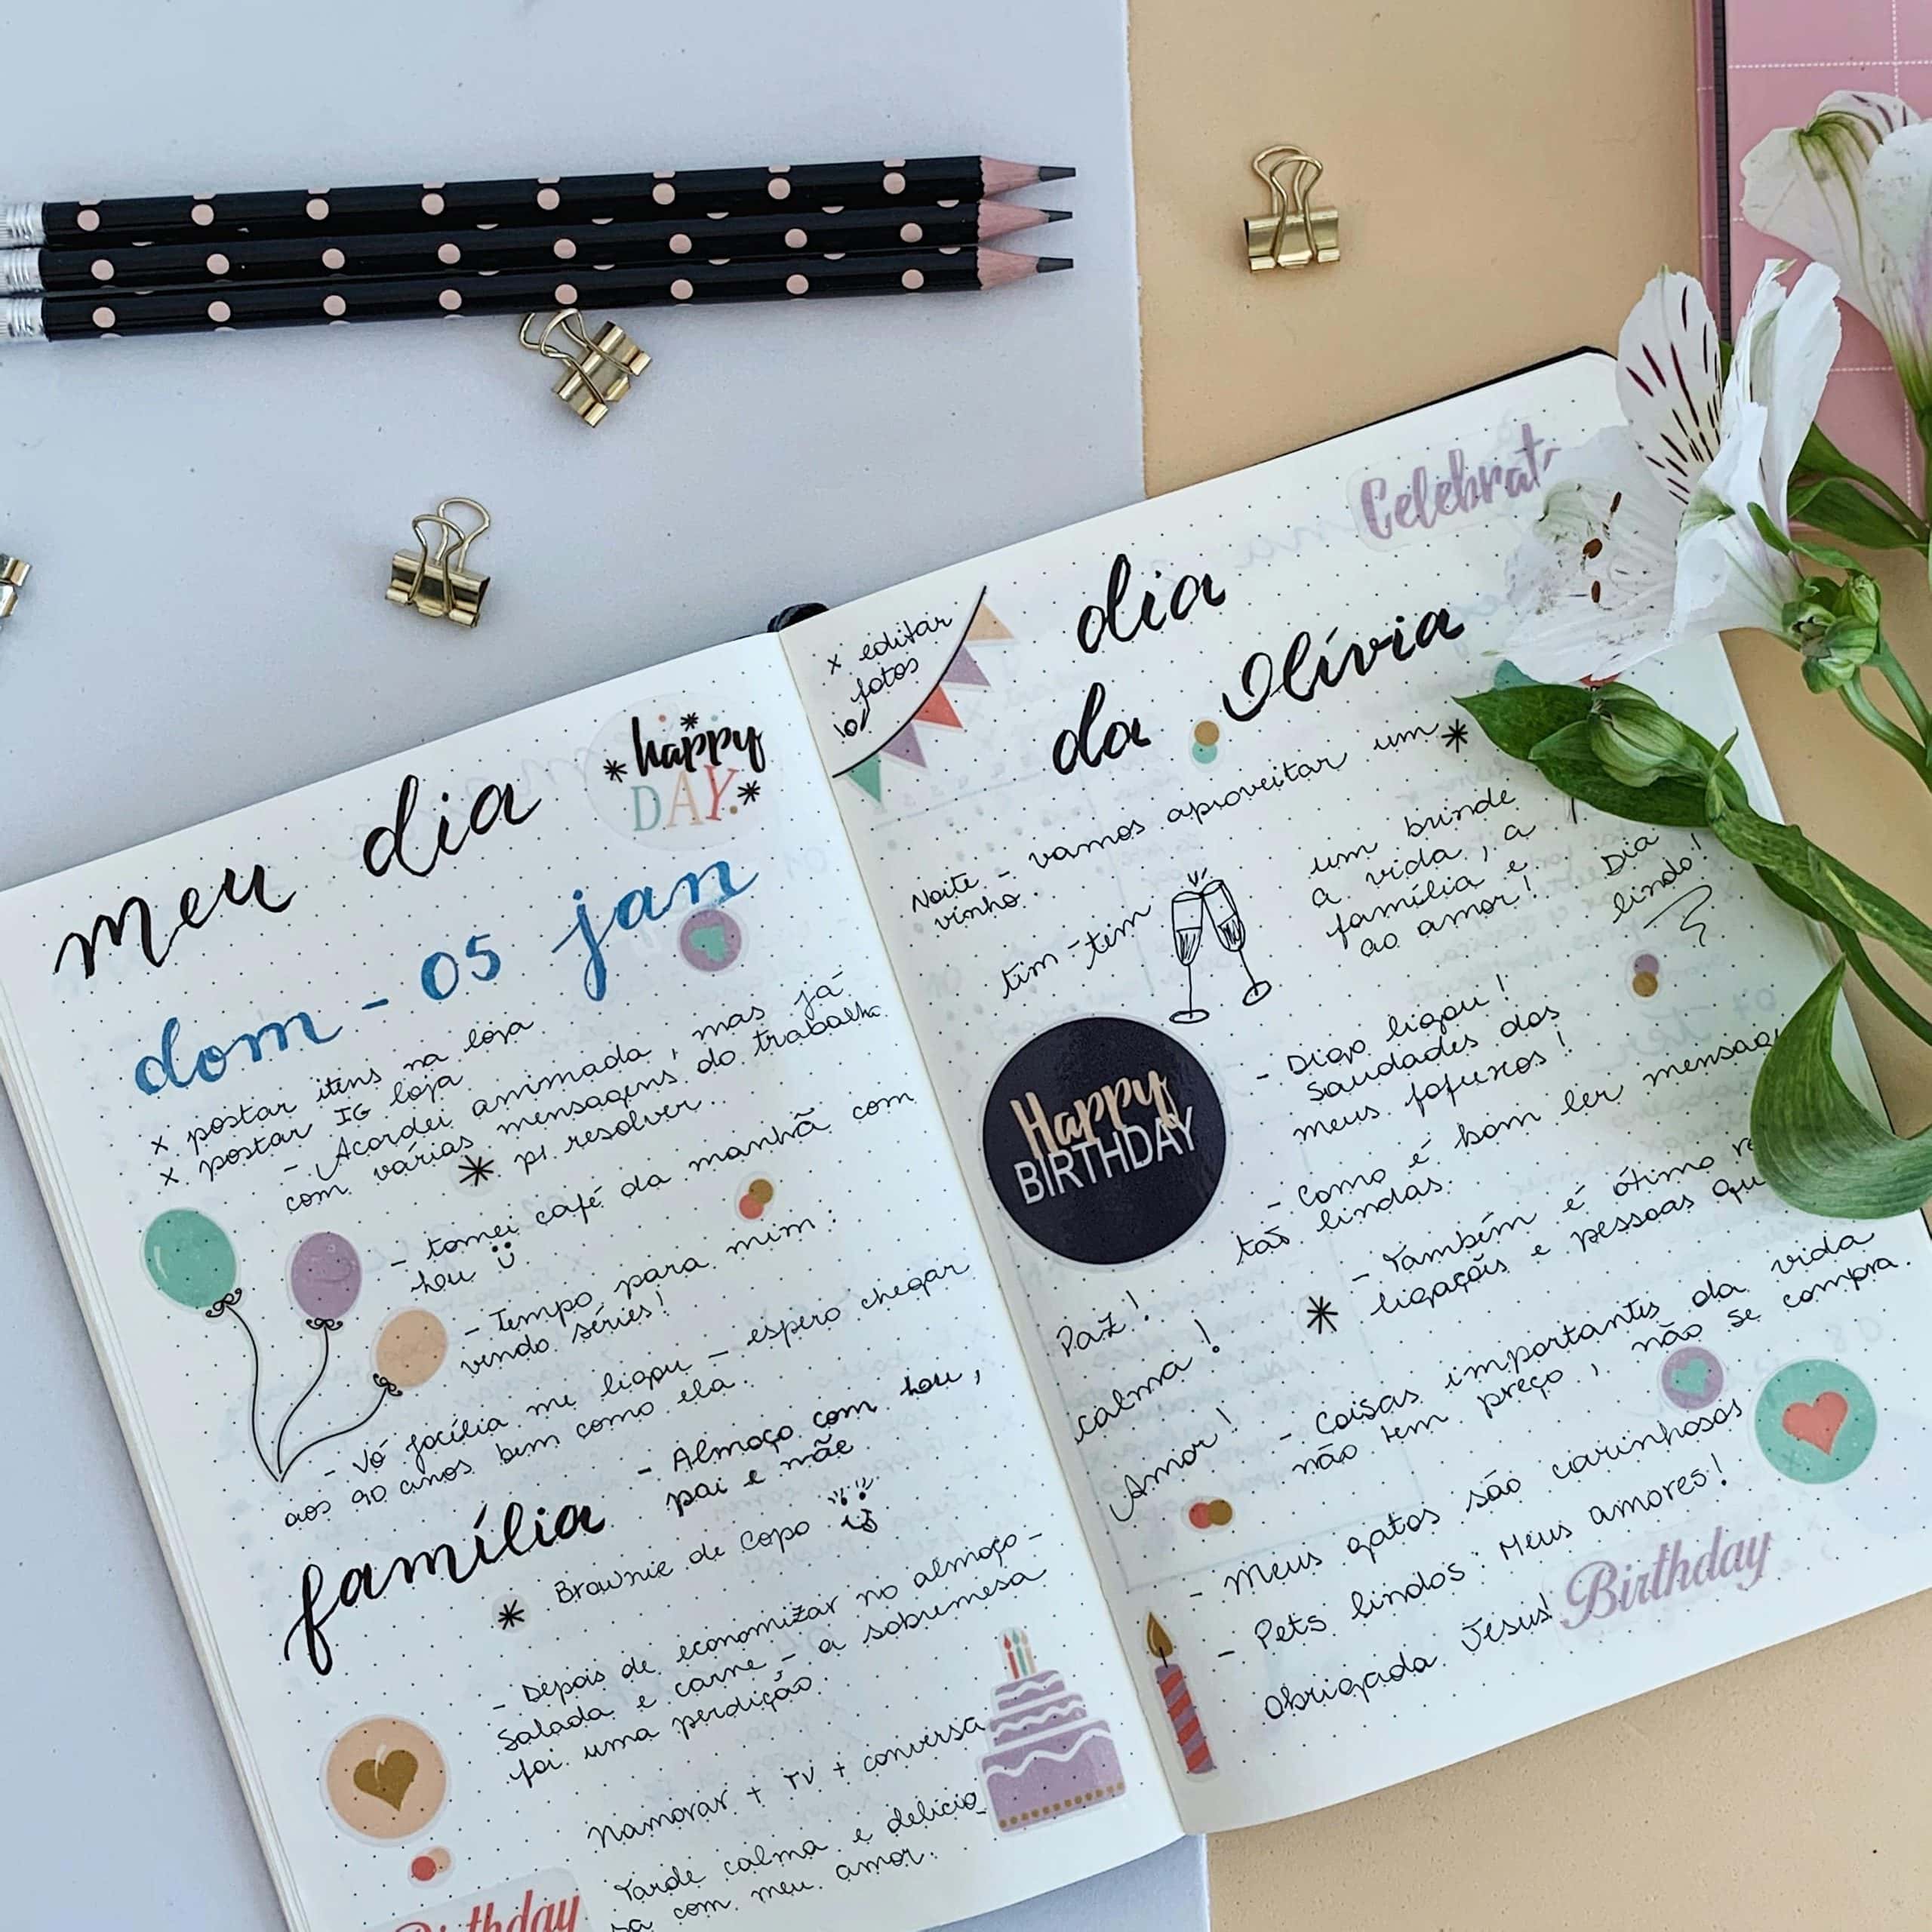 meu dia
happy
DAY.
dom - 05 jan
x postar itens na loja
x postar IG loja
- Acordei animada, mas já
com várias mensagens do trabalho
p/ resolver..
- tomei café da manhã com
- Tempo para mim:
vendo séries!
- Vó Jocília me ligou - espero chegar
aos 90 anos bem como ela.
família
- Almoço com
pai e mãe
Brownie de Copo
- Depois de economizar no almoço -
Salada e carne - a sobremesa
foi uma perdição.
Namorar + TV + conversa
Tarde calma e delicio
sa com meu amor.
Birthday
x editar
fotos
Celebrat
dia
da Olívia
Noite - vamos aproveitar um
vinho.
tim-tim
um brinde
a vida, a
família e
ao amor! Dia
lindo!
Happy
BIRTHDAY
- Diogo ligou!
Saudades dos
meus fofuxos!
- Como é bom ler mensag
tas lindas.
- Também é ótimo
ligações e pessoas qu
Paz!
calma!
Amor!
- Coisas importantes da vida
não tem preço, não se compra.
- Meus gatos são carinhosos
- Pets lindos. Meus amores!
Obrigada Jesus!
Birthday